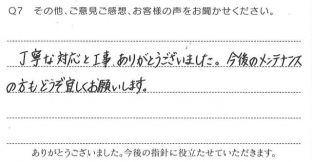 Q7 その他、ご意見ご感想、お客様の声をお聞かせください。
丁寧な対応と工事、ありがとうございました。今後のメンテナンス
の方もどうぞ宜しくお願いします。
ありがとうございました。今後の指針に役立たせていただきます。